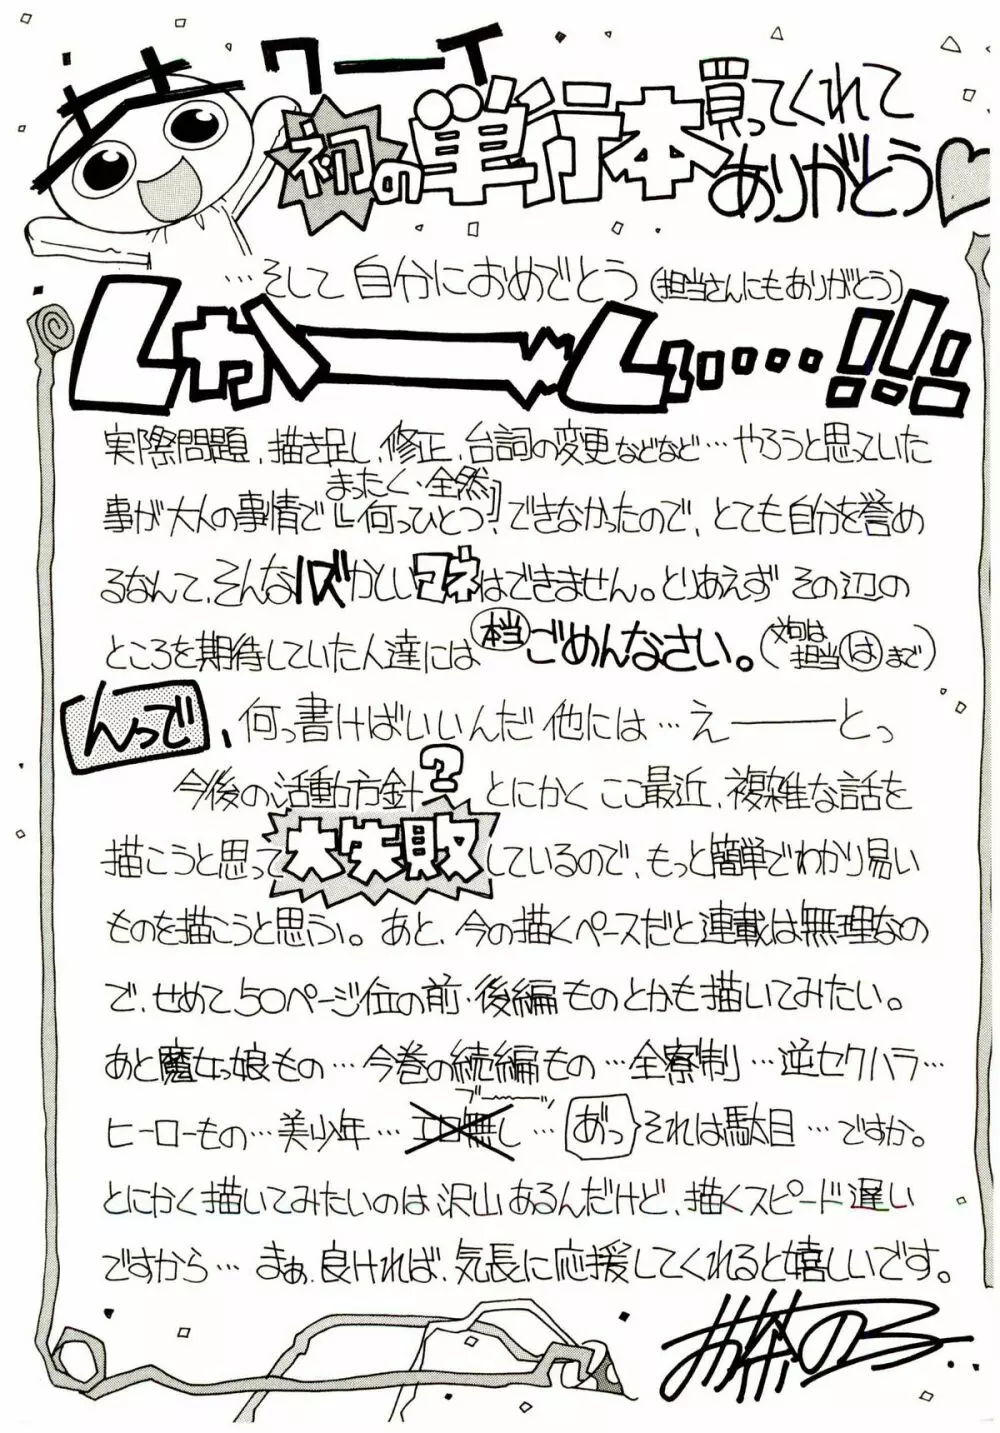 ワーイ
初の単行本買ってくれて
ありがとう♡
…そして自分におめでとう(担当さんにもありがとう)
しかーーしぃ…!!!
実際問題、描き足し、修正、台詞の変更などなど…やろうと思っていた
まったく・全然
事が大人の事情で『何っひとつ!』できなかったので、とても自分を誉め
るなんて、そんなハズかしいマネはできません。とりあえず その辺の
ところを期待していた人達には本当ごめんなさい。(文句は担当はまで)
んっで、何っ書けばいいんだ 他には…えーーーとっ
今後の活動方針?とにかく ここ最近、複雑な話を
描こうと思って大失敗しているので、もっと簡単でわかり易い
ものを描こうと思う。あと、今の描くペースだと連載は無理なの
で、せめて50ページ位の前・後編ものとかも描いてみたい。
あと魔女っ娘もの…今巻の続編もの…全寮制…逆セクハラ…
ブーーッ
ヒーローもの…美少年…エロ無し…あ゛っそれは駄目…ですか。
とにかく描いてみたいのは沢山あるんだけど、描くスピード遅い
ですから…まぁ、良ければ、気長に応援してくれると嬉しいです。
お茶のころ…